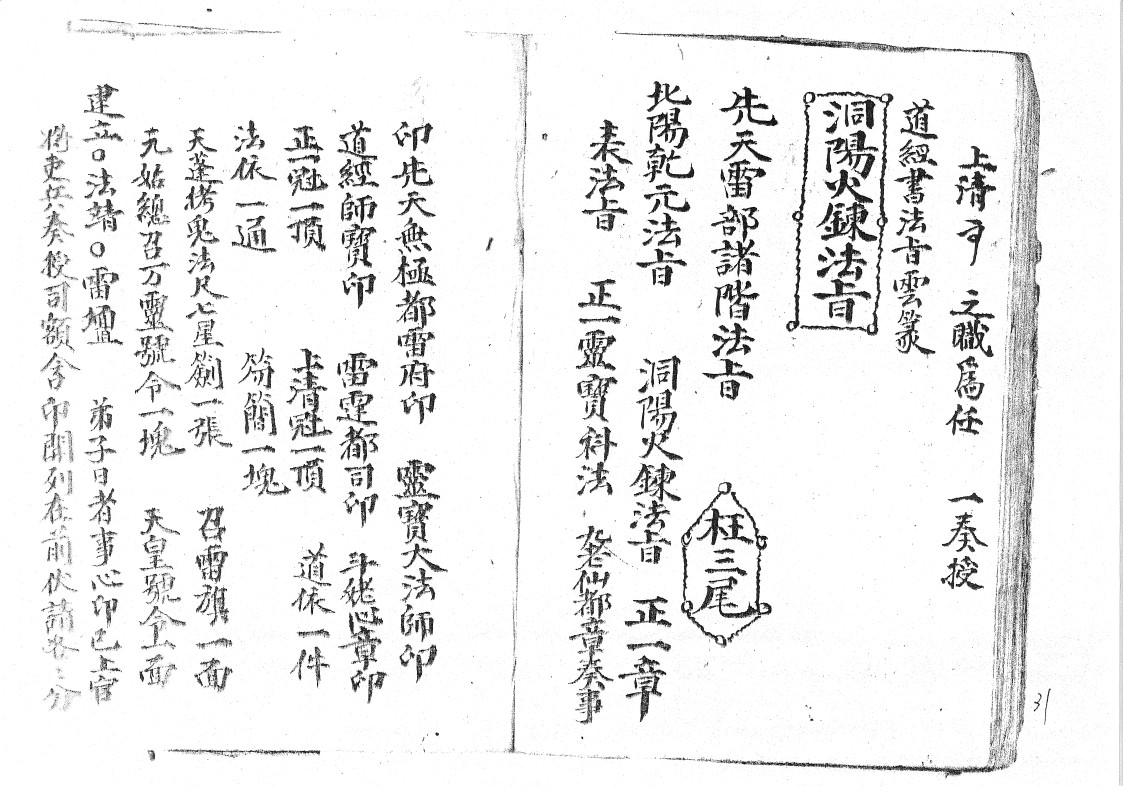 上清 之職為任 一奏授
道經書法旨雲篆
洞陽火鍊法旨
先天雷部諸階法旨 枉三尾
北陽乾元法旨 洞陽火鍊法旨 正一章
表法旨 正一靈寶科法 老仙都章奏事
印先天無極都雷府印 靈寶大法師印
道經師寶印 雷霆都司印 斗姥心章印
正一冠一頂 上清冠一頂 道依一件
法依一通 笏簡一塊
天蓬拷鬼法尺七星劍一張 召雷旗一面
元始總召万靈號令一塊 天皇號令一面
建立○法靖○雷壇 弟子日者事心印已上官
將吏兵奏授司額合印開列在前伏請各々分
31